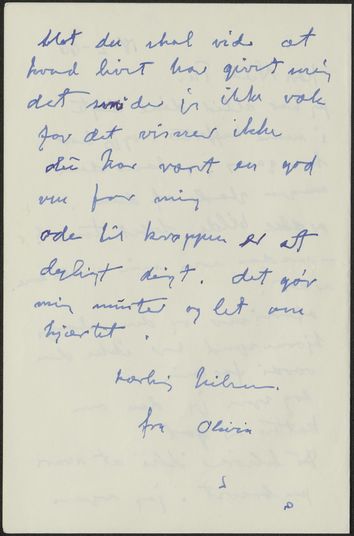 Met du skal vide at
hvad livet har givet mig
det smider jeg ikke væk
for det visner ikke
du har vært en god
ven for mig
ode til kroppen er et
dejligt digt. det gør
mig munter og let om
hjærtet.
kærlig hilsen.
fra Olivia